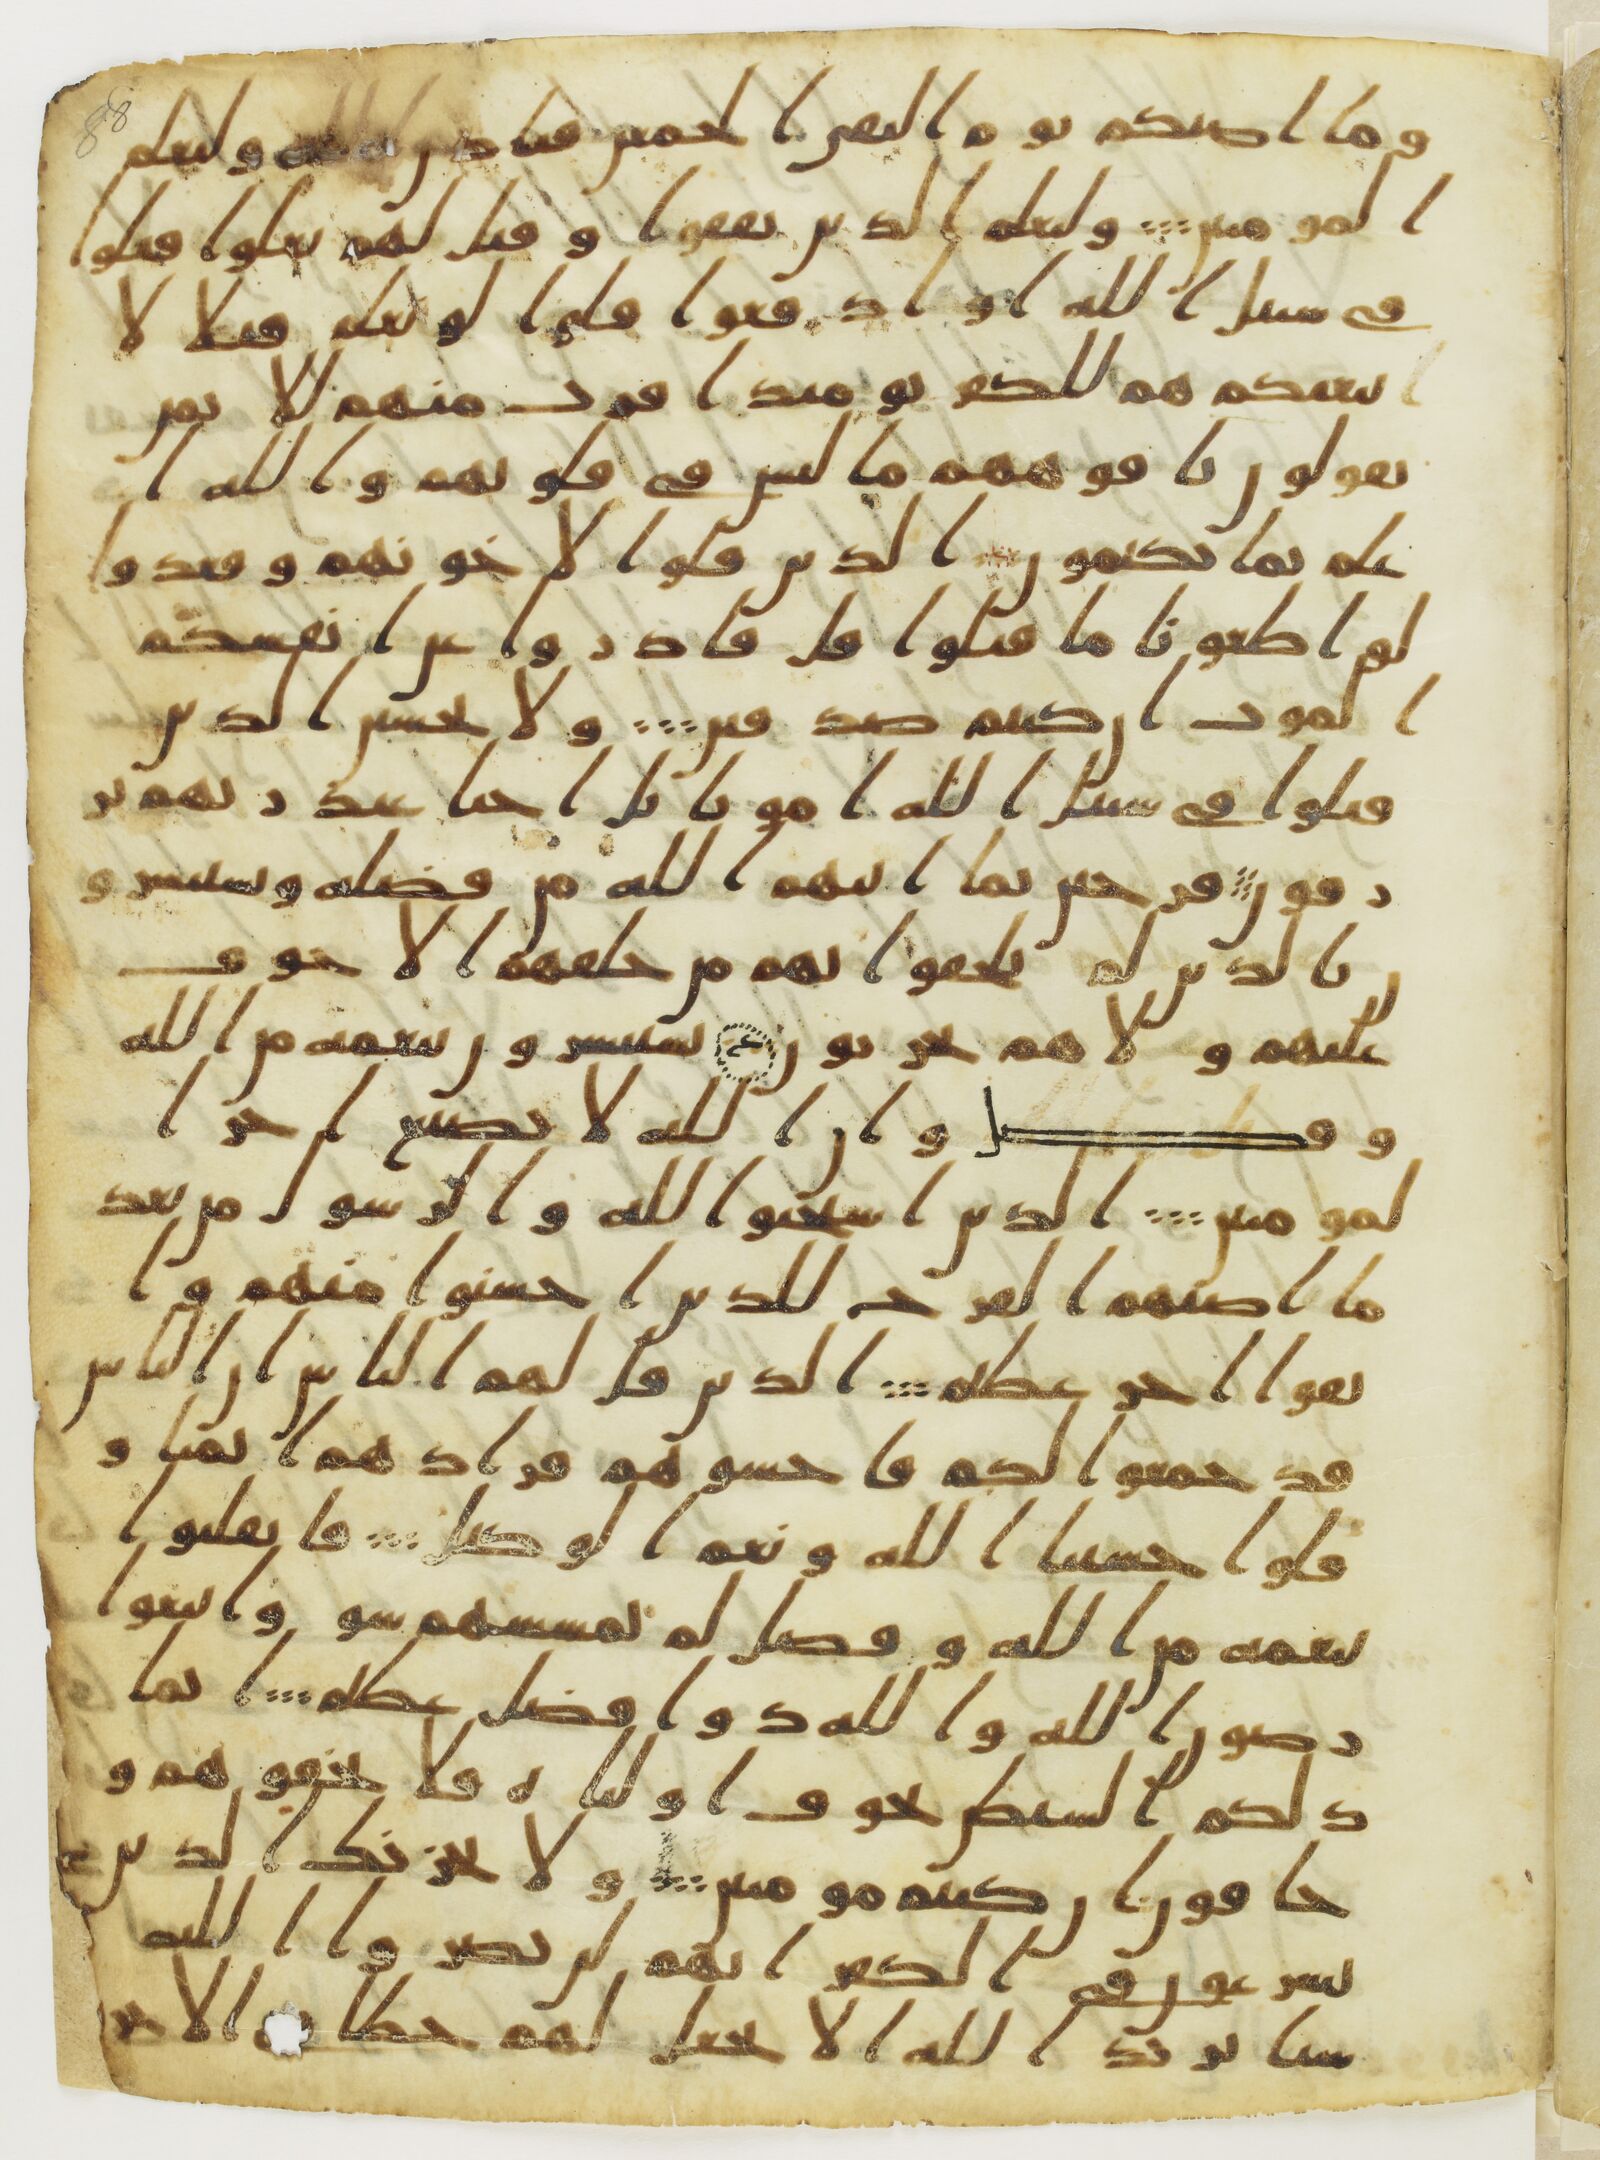 88
وما اصبكم يوم التقى الجمعن فباذن الله وليعلم
المومنين ⁘ وليعلم الذين نفقوا وقيل لهم تعلوا قتلوا
في سبيل الله او ادفعوا قلوا لو نعلم قتلا لا
اتبعنكم هم للكفر يومئذ اقرب منهم للايمن
يقولون بافوههم ما ليس في قلوبهم والله ا
علم بما يكتمون الذين قلوا لاخونهم وقعدوا
لو اطعونا ما قتلوا قل فادروا عن انفسكم
الموت ان كنتم صدقين ⁘ ولا تحسبن الذين
قتلوا في سبيل الله اموتا بل احيا عند ربهم ير
زقون ⁘ فرحين بما اتيهم الله من فضله ويستبشرو
ن بالذين لم يلحقوا بهم من خلفهم الا خوف
عليهم ولا هم يحزنون يستبشرون بنعمه من الله
وفضل وان الله لا يضيع اجر ا
لمومنين ⁘ الذين استجبوا لله والرسول من بعد
ما اصبهم القرح للذين احسنوا منهم وا
تقوا اجر عظيم ⁘ الذين قل لهم الناس ان الناس
قد جمعوا لكم فاخشوهم فزادهم ايمنا و
قلوا حسبنا الله ونعم الوكيل ⁘ فانقلبوا
بنعمه من الله وفضل لم يمسسهم سو واتبعوا
رضون الله والله ذوا فضل عظيم ⁘ انما
ذلكم الشيطن يخوف اولياه فلا تخفوهم و
خافون ان كنتم مومنين ⁘ ولا يحزنك الذين
يسرعون في الكفر انهم لن يضروا الله
شيا يريد الله الا يجعل لهم حظا في الاخر